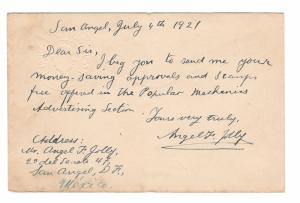 San Angel, July 4th 1921
Dear Sir,
I beg you to send me your
money-saving approvals and stamps
free offered in the Popular Mechanics
Advertising Section.
Yours very truly,
Angel F. Jolly
Address:
Mr. Angel F. Jolly,
San Angel, D.F.
Mexico.